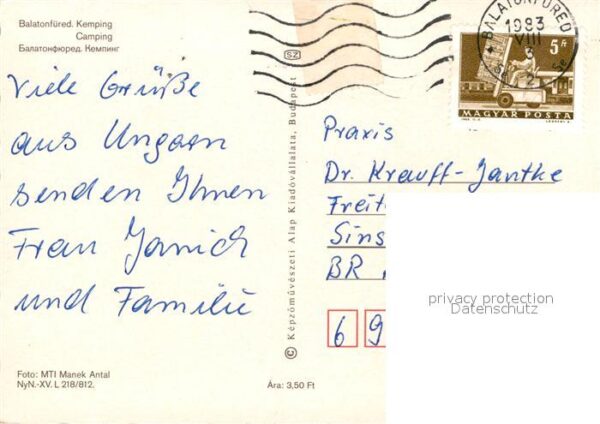 Balatonfüred. Kemping
Camping
Балатонфюред. Кемпинг
Viele Grüße
aus Ungarn
senden Ihnen
Frau Janich
und Familie
Foto: MTI Manek Antal
NyN.-XV. L 218/812.
Ára: 3,50 Ft
SZ
© Képzőművészeti Alap Kiadóvállalata, Budapest
BALATONFÜRED
1983
VIII
5 Ft
MAGYAR POSTA
Praxis
Dr. Krauff-Jantke
Freit
Sins
BR
6 9
privacy protection
Datenschutz